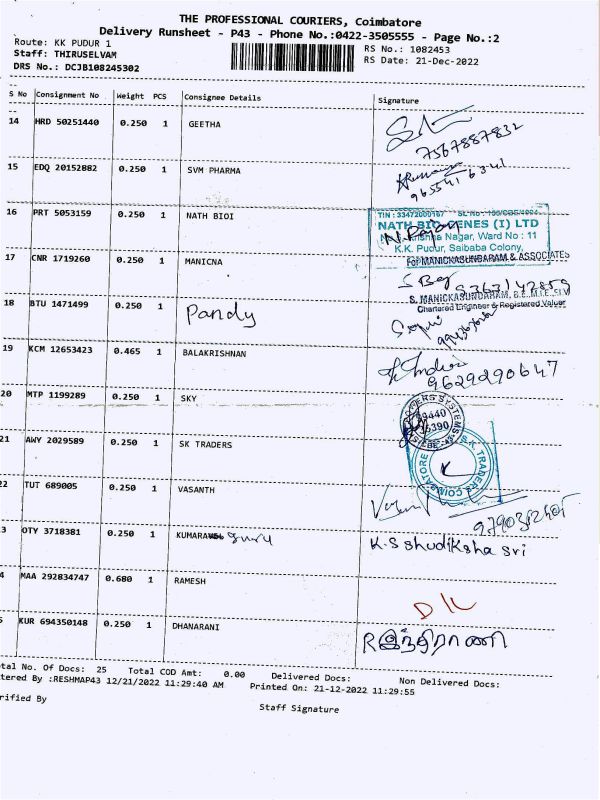 THE PROFESSIONAL COURIERS, Coimbatore
Delivery Runsheet - P43 - Phone No.:0422-3505555 - Page No.:2
Route: KK PUDUR 1
RS No.: 1082453
Staff: THIRUSELVAM
RS Date: 21-Dec-2022
DRS No.: DCJB108245302
S No Consignment No Weight PCS Consignee Details Signature
14 HRD 50251440 0.250 1 GEETHA
7567887832
15 EDQ 20152882 0.250 1 SVM PHARMA
9655416341
16 PRT 5053159 0.250 1 NATH BIOI
TIN : 33472000167
NATH BIO-GENES (I) LTD
Nagar, Ward No : 11
K.K. Pudur, Saibaba Colony,
17 CNR 1719260 0.250 1 MANICNA
For MANICKASUNDARAM & ASSOCIATES
S. MANICKASUNDARAM, B.E, M.I.E, SLV
Chartered Engineer & Registered Valuer
18 BTU 1471499 0.250 1 Pandy
19 KCM 12653423 0.465 1 BALAKRISHNAN
9629290647
20 MTP 1199289 0.250 1 SKY
21 AWY 2029589 0.250 1 SK TRADERS
S.K TRADERS COIMBATORE
22 TUT 689005 0.250 1 VASANTH
3 OTY 3718381 0.250 1 KUMARA guru
K.S shudiksha sri
4 MAA 292834747 0.680 1 RAMESH
5 KUR 694350148 0.250 1 DHANARANI
R இந்திராணி
otal No. Of Docs: 25 Total COD Amt: 0.00 Delivered Docs: Non Delivered Docs:
tered By :RESHMAP43 12/21/2022 11:29:40 AM Printed On: 21-12-2022 11:29:55
rified By
Staff Signature